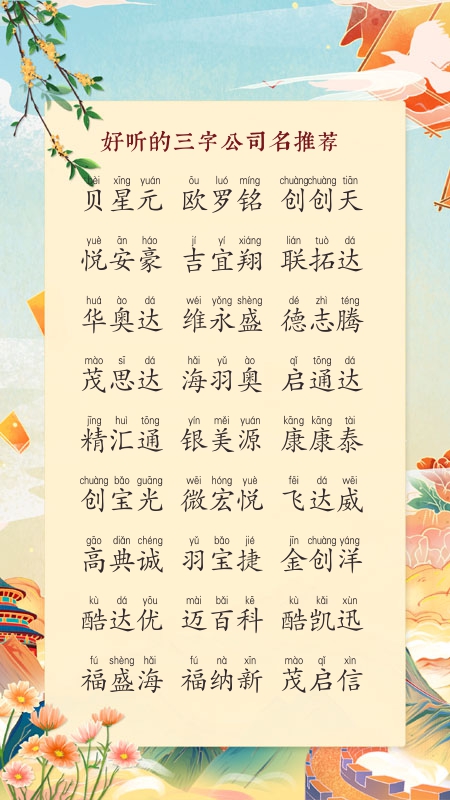 好听的三字公司名推荐
bèi xīng yuán ōu luó míng chuàng chuàng tiān
贝星元 欧罗铭 创创天
yuè ān háo jí yí xiáng lián tuò dá
悦安豪 吉宜翔 联拓达
huá ào dá wéi yǒng shèng dé zhì téng
华奥达 维永盛 德志腾
mào sī dá hǎi yǔ ào qǐ tōng dá
茂思达 海羽奥 启通达
jīng huì tōng yín měi yuán kāng kāng tài
精汇通 银美源 康康泰
chuàng bǎo guāng wēi hóng yuè fēi dá wēi
创宝光 微宏悦 飞达威
gāo diǎn chéng yǔ bǎo jié jīn chuàng yáng
高典诚 羽宝捷 金创洋
kù dá yōu mài bǎi kē kù kǎi xùn
酷达优 迈百科 酷凯迅
fú shèng hǎi fú nà xīn mào qǐ xìn
福盛海 福纳新 茂启信